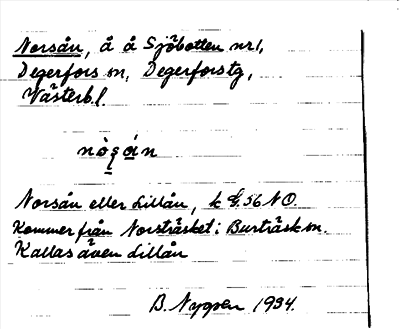 Norsån, å å Sjöbotten nr 1,
Degerfors sn, Degerfors tg,
Västerb l.
nò̱ʂα̱n
Norsån eller Lillån, k bl. 56 NO.
Kommer från Norsträsket i Burträsk sn.
Kallas även Lillån
B. Nygren 1934.